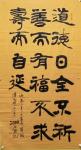 道德日全不祈
善而有福不求
壽而自延